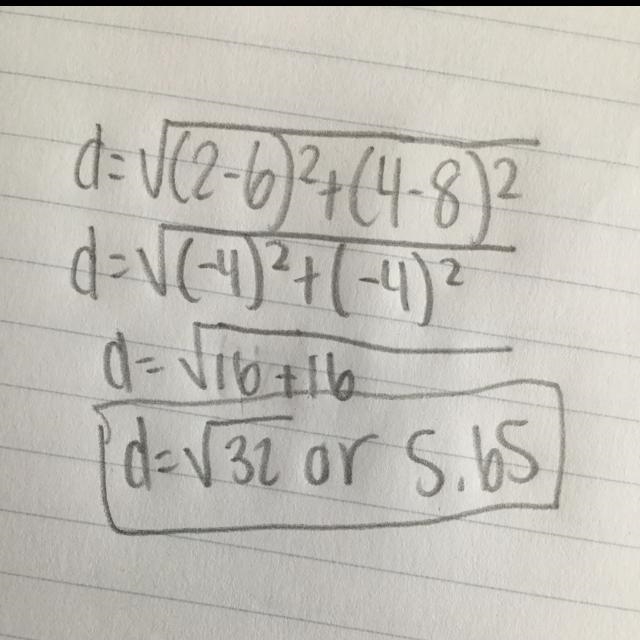 d=√(2-6)²+(4-8)²
d=√(-4)²+(-4)²
d=√16+16
d=√32 or 5.65